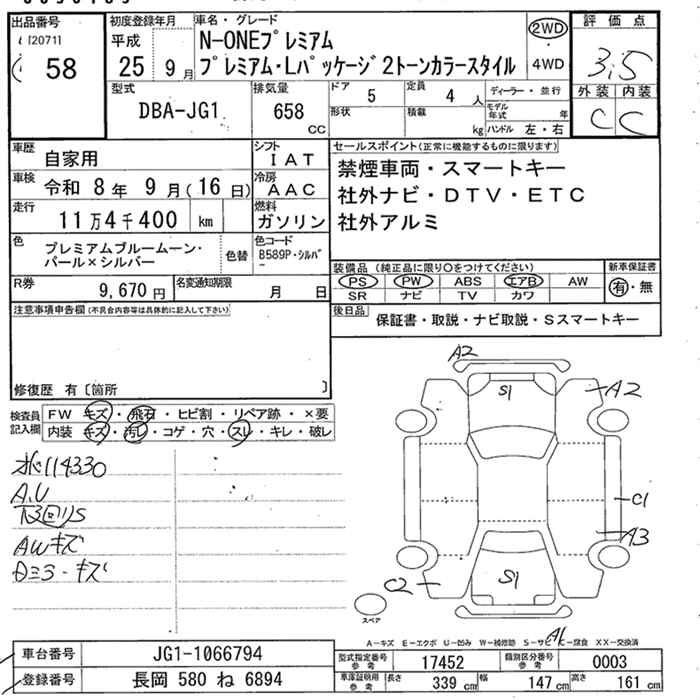 出品番号
58
初度登録年月
平成
25 9月
車名・グレード
N-ONEプレミアム
プレミアム・Lパッケージ2トーンカラースタイル
2WD
4WD
評価点
3.5
外装 内装
C C
型式
DBA-JG1
排気量
658
CC
ドア
5
形状
定員
4人
積載
kg
ディーラー・並行
モデル年式 年
ハンドル 左・右
車歴
自家用
シフト
IAT
車検
令和 8年 9月(16日)
冷房
AAC
走行
11万4千400 km
燃料
ガソリン
色
プレミアムブルームーン・
パール×シルバー
色替
色コード
B589P・シルバー
R券
9,670円
名変通知期限
月 日
セールスポイント(正常に機能するものに限ります)
禁煙車両・スマートキー
社外ナビ・DTV・ETC
社外アルミ
装備品 (純正品に限り○をつけてください)
PS PW ABS エアB AW
SR ナビ TV カワ
新車保証書
有・無
後日品
保証書・取説・ナビ取説・Sスマートキー
注意事項申告欄(不具合内容等は具体的に記入して下さい)
修復歴 有〔箇所 〕
検査員記入欄
FW キズ・飛石・ヒビ割・リペア跡・×要
内装 キズ・汚レ・コゲ・穴・スレ・キレ・破レ
114330
A.U
AWキズ
A2
S1
A2
C1
A3
S1
C2
スペア
A1
A-キズ E-エクボ U-凹み W-補修跡 S-サビ C-腐食 XX-交換済
車台番号
JG1-1066794
登録番号
長岡 580 ね 6894
型式指定番号
参考
17452
類別区分番号
参考
0003
車庫証明用
参考
長さ 339cm 幅 147cm 高さ 161cm